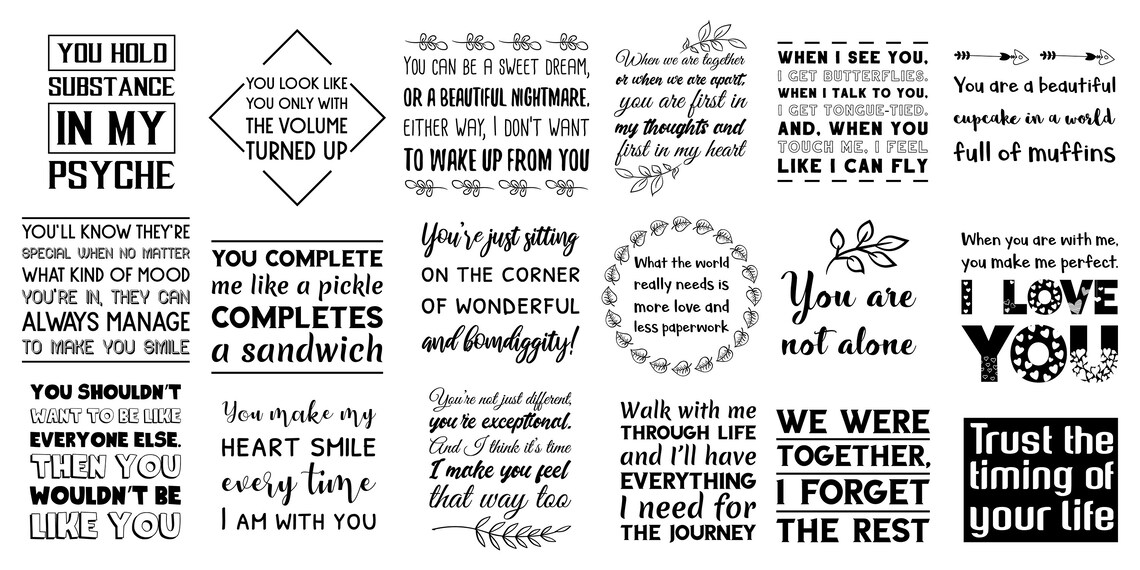 YOU HOLD
SUBSTANCE
IN MY
PSYCHE
YOU LOOK LIKE
YOU ONLY WITH
THE VOLUME
TURNED UP
YOU CAN BE A SWEET DREAM,
OR A BEAUTIFUL NIGHTMARE.
EITHER WAY, I DON'T WANT
TO WAKE UP FROM YOU
When we are together
or when we are apart,
you are first in
my thoughts and
first in my heart
WHEN I SEE YOU,
I GET BUTTERFLIES.
WHEN I TALK TO YOU,
I GET TONGUE-TIED.
AND, WHEN YOU
TOUCH ME, I FEEL
LIKE I CAN FLY
You are a beautiful
cupcake in a world
full of muffins
YOU'LL KNOW THEY'RE
SPECIAL WHEN NO MATTER
WHAT KIND OF MOOD
YOU'RE IN, THEY CAN
ALWAYS MANAGE
TO MAKE YOU SMILE
YOU COMPLETE
me like a pickle
COMPLETES
a sandwich
You're just sitting
ON THE CORNER
OF WONDERFUL
and bomdiggity!
What the world
really needs is
more love and
less paperwork
You are
not alone
When you are with me,
you make me perfect.
I LOVE
YOU
YOU SHOULDN'T
WANT TO BE LIKE
EVERYONE ELSE.
THEN YOU
WOULDN'T BE
LIKE YOU
You make my
HEART SMILE
every time
I AM WITH YOU
You're not just different,
you're exceptional.
And I think it's time
I make you feel
that way too
Walk with me
THROUGH LIFE
and I'll have
EVERYTHING
I need for
THE JOURNEY
WE WERE
TOGETHER,
I FORGET
THE REST
Trust the
timing of
your life